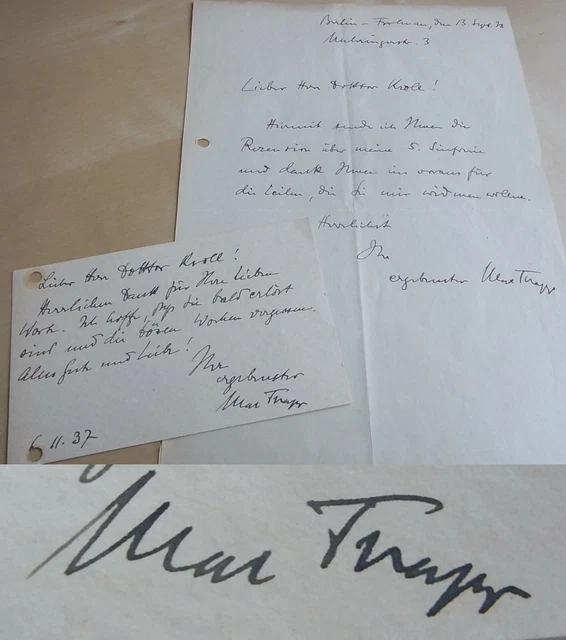 Berlin – Frohnau, den 13. Sept. 
Lieber Herr Doktor Kroll!
Hiermit sende ich Ihnen die
Rezension über meine 5. Sinfonie
und dank Ihnen im voraus für
die Zeilen, die Sie mir widmen wollen.
Herzlichst
Ihr
ergebenster Max Trapp
Lieber Herr Doktor Kroll!
Herzlichen Dank für Ihre lieben
Worte. Ich hoffe, daß Sie bald erlöst
sind und die bösen Wochen vergessen.
Alles Gute und Liebe!
Ihr
ergebenster
Max Trapp
6 11. 37
Max Trapp